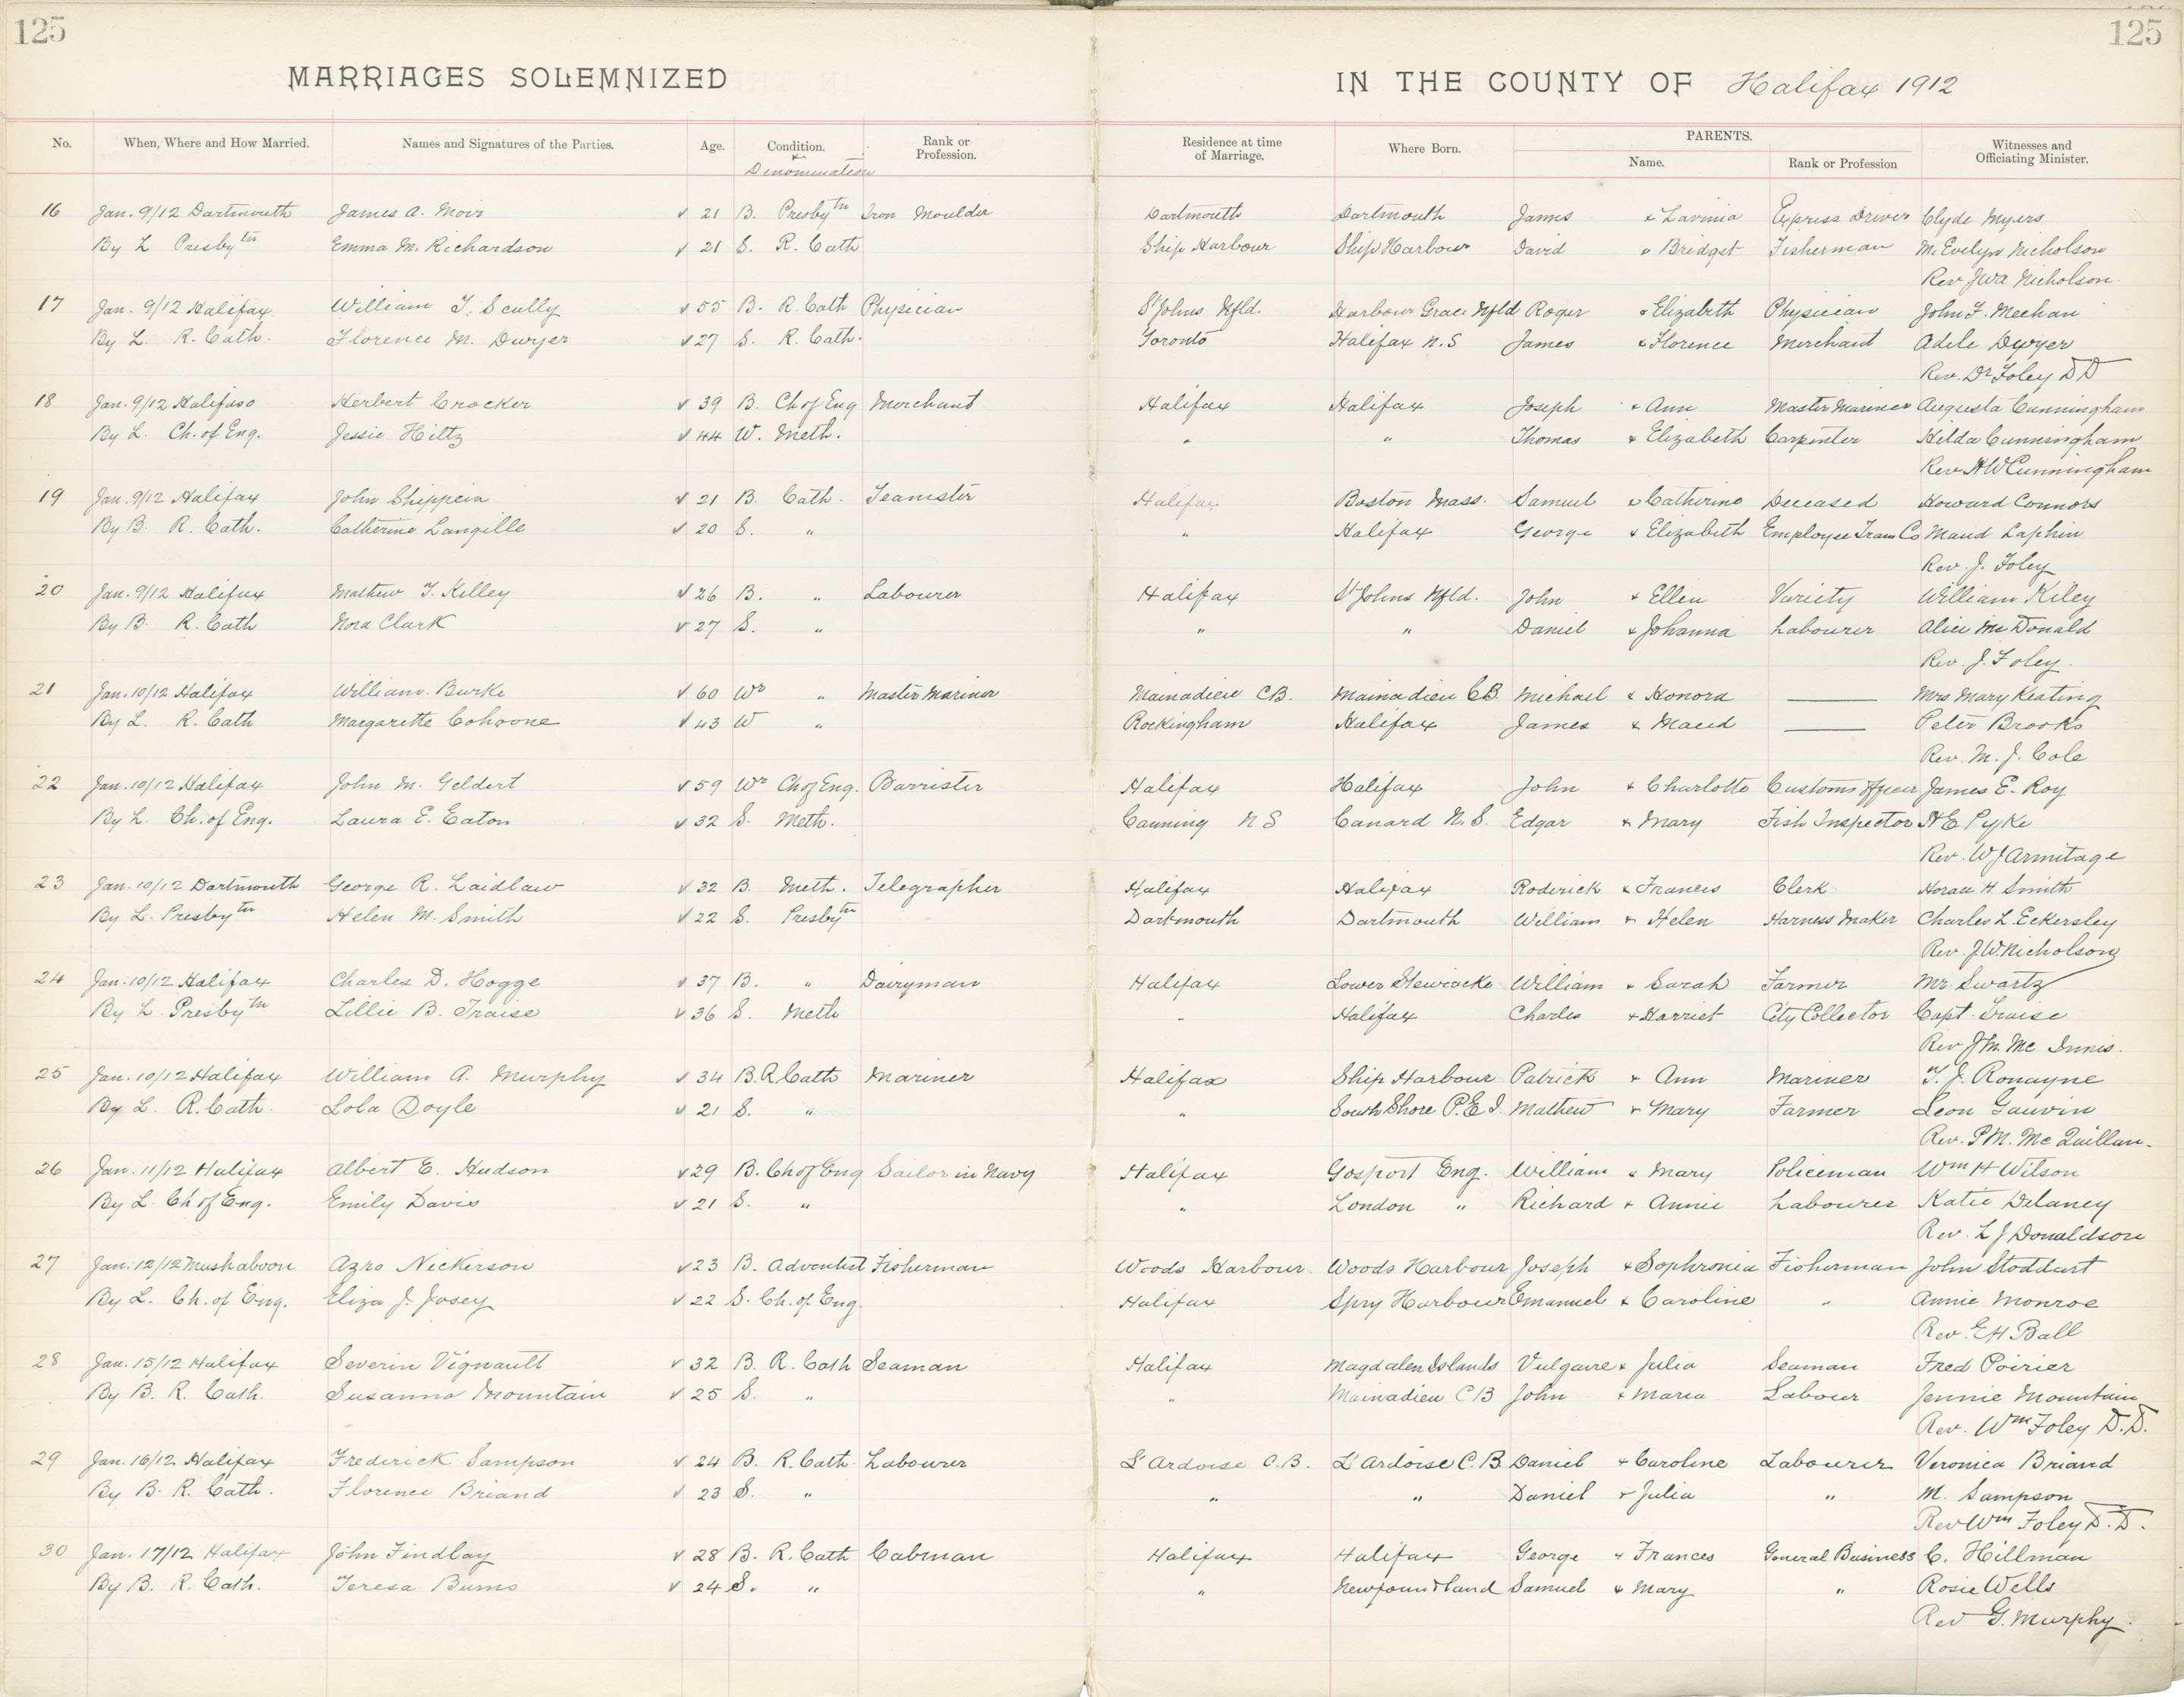 125 125
MARRIAGES SOLEMNIZED IN THE COUNTY OF Halifax 1912
No. When, Where and How Married. Names and Signatures of the Parties. Age. Condition. & Denomination Rank or Profession. Residence at time of Marriage. Where Born. PARENTS. Name. Rank or Profession Witnesses and Officiating Minister.
16 Jan. 9/12 Dartmouth James A. Moir √ 21 B. Presbytn Iron Moulder Dartmouth Dartmouth James & Lavinia Express Driver Clyde Myers
By L Presbytn Emma M. Richardson √ 21 S. R. Cath Ship Harbour Ship Harbour David " Bridget Fisherman M. Evelyn Nicholson
Rev Nicholson.
17 Jan. 9/12 Halifax William T. Scully √ 55 B. R. Cath Physician St Johns Nfld. Harbour Grace Nfld Roger & Elizabeth Physician John F. Meehan
By L. R. Cath. Florence M. Dwyer √ 27 S. R. Cath. Toronto Halifax N.S James & Florence Merchant Adele Dwyer
Rev. Dr Foley DD
18 Jan. 9/12 Halifax Herbert Crocker √ 39 B. Ch of Eng Merchant Halifax Halifax Joseph & Ann Master Mariner Augusta Cunningham
By L. Ch. of Eng. Jessie Hiltz √ 44 W. Meth. " " Thomas & Elizabeth Carpenter Hilda Cunningham
Rev H W Cunningham
19 Jan. 9/12 Halifax John Shippein √ 21 B. Cath. Teamster Halifax Boston Mass. Samuel & Catherine Deceased Howard Connors
By B. R. Cath. Catherine Langille √ 20 S. " " Halifax George & Elizabeth Employee Tram Co Maud Laphin
Rev. J. Foley
20 Jan. 9/12 Halifax Mathew T. Kelley √ 26 B. " Labourer Halifax St Johns Nfld. John & Ellen Variety William Kiley
By B R. Cath Nora Clark √ 27 S. " " " Daniel & Johanna Labourer Alice McDonald
Rev. J. Foley.
21 Jan. 10/12 Halifax William Burke √ 60 Wr " Master Mariner Mainadieu CB. Mainadieu CB Michael & Honora — Mrs Mary Keating
By L. R. Cath Margarette Cohoone √ 43 W " Rockingham Halifax James & Maud — Peter Brooks
Rev. M. J. Cole
22 Jan. 10/12 Halifax John M. Geldert √ 59 Wr Ch of Eng. Barrister Halifax Halifax John & Charlotte Customs Officer James E. Roy
By L. Ch. of Eng. Laura E. Eaton √ 32 S. Meth. Canning N S Canard N.S. Edgar & Mary Fish Inspector H E Pyke
Rev. W J Armitage
23 Jan. 10/12 Dartmouth George R. Laidlaw √ 32 B. Meth. Telegrapher Halifax Halifax Roderick & Frances Clerk Horace H Smith
By L. Presbytn Helen M. Smith √ 22 S. Presbytn Dartmouth Dartmouth William & Helen Harness Maker Charles L. Eckersley
Rev. J. W. Nicholson
24 Jan. 10/12 Halifax Charles D. Hogge √ 37 B. " Dairyman Halifax Lower Stewiacke William & Sarah Farmer Mr. Swartz
By L. Presbytn Lillie B. Fraise √ 36 S. Meth " Halifax Charles & Harriet City Collector Capt. Fraise
Rev J M. Mc Innis.
25 Jan. 10/12 Halifax William A. Murphy √ 34 B. R Cath Mariner Halifax Ship Harbour Patrick & Ann Mariner T. J. Ronayne
By L. R. Cath. Lola Doyle √ 21 S. " " South Shore P.E.I. Mathew & Mary Farmer Leon Gauvin
Rev. P M. Mc Quillan.
26 Jan. 11/12 Halifax Albert E. Hudson √ 29 B. Ch of Eng Sailor in Navy Halifax Gosport Eng. William & Mary Policeman Wm H Wilson
By L. Ch of Eng. Emily Davis √ 21 S. " " London " Richard & Annie Labourer Katie Delaney
Rev. L J Donaldson
27 Jan. 12/12 Mushaboon Azro Nickerson √ 23 B. Adventist Fisherman Woods Harbour Woods Harbour Joseph & Sophronia Fisherman John Stoddart
By L. Ch. of Eng. Eliza J. Josey √ 22 S. Ch. of Eng. Halifax Spry Harbour Emanuel & Caroline " Annie Monroe
Rev. E H Ball
28 Jan. 15/12 Halifax Severin Vignault √ 32 B. R. Cath Seaman Halifax Magdalen Islands Vulgaire & Julia Seaman Fred Poirier
By B. R. Cath. Susanna Mountain √ 25 S. " " Mainadieu C B John & Maria Labour Jennie Mountain
Rev. Wm Foley D.D.
29 Jan. 16/12 Halifax Frederick Sampson √ 24 B. R. Cath. Labourer L'Ardoise C.B. L'Ardoise C.B Daniel & Caroline Labourer Veronica Briand
By B. R. Cath. Florence Briand √ 23 S. " " " Daniel & Julia " M. Sampson
Rev Wm Foley D.D.
30 Jan. 17/12 Halifax John Findlay √ 28 B. R. Cath Cabman Halifax Halifax George & Frances General Business C. Hillman
By B. R. Cath. Teresa Burns √ 24 S. " " Newfoundland Samuel & Mary " Rosie Wells
Rev G. Murphy.